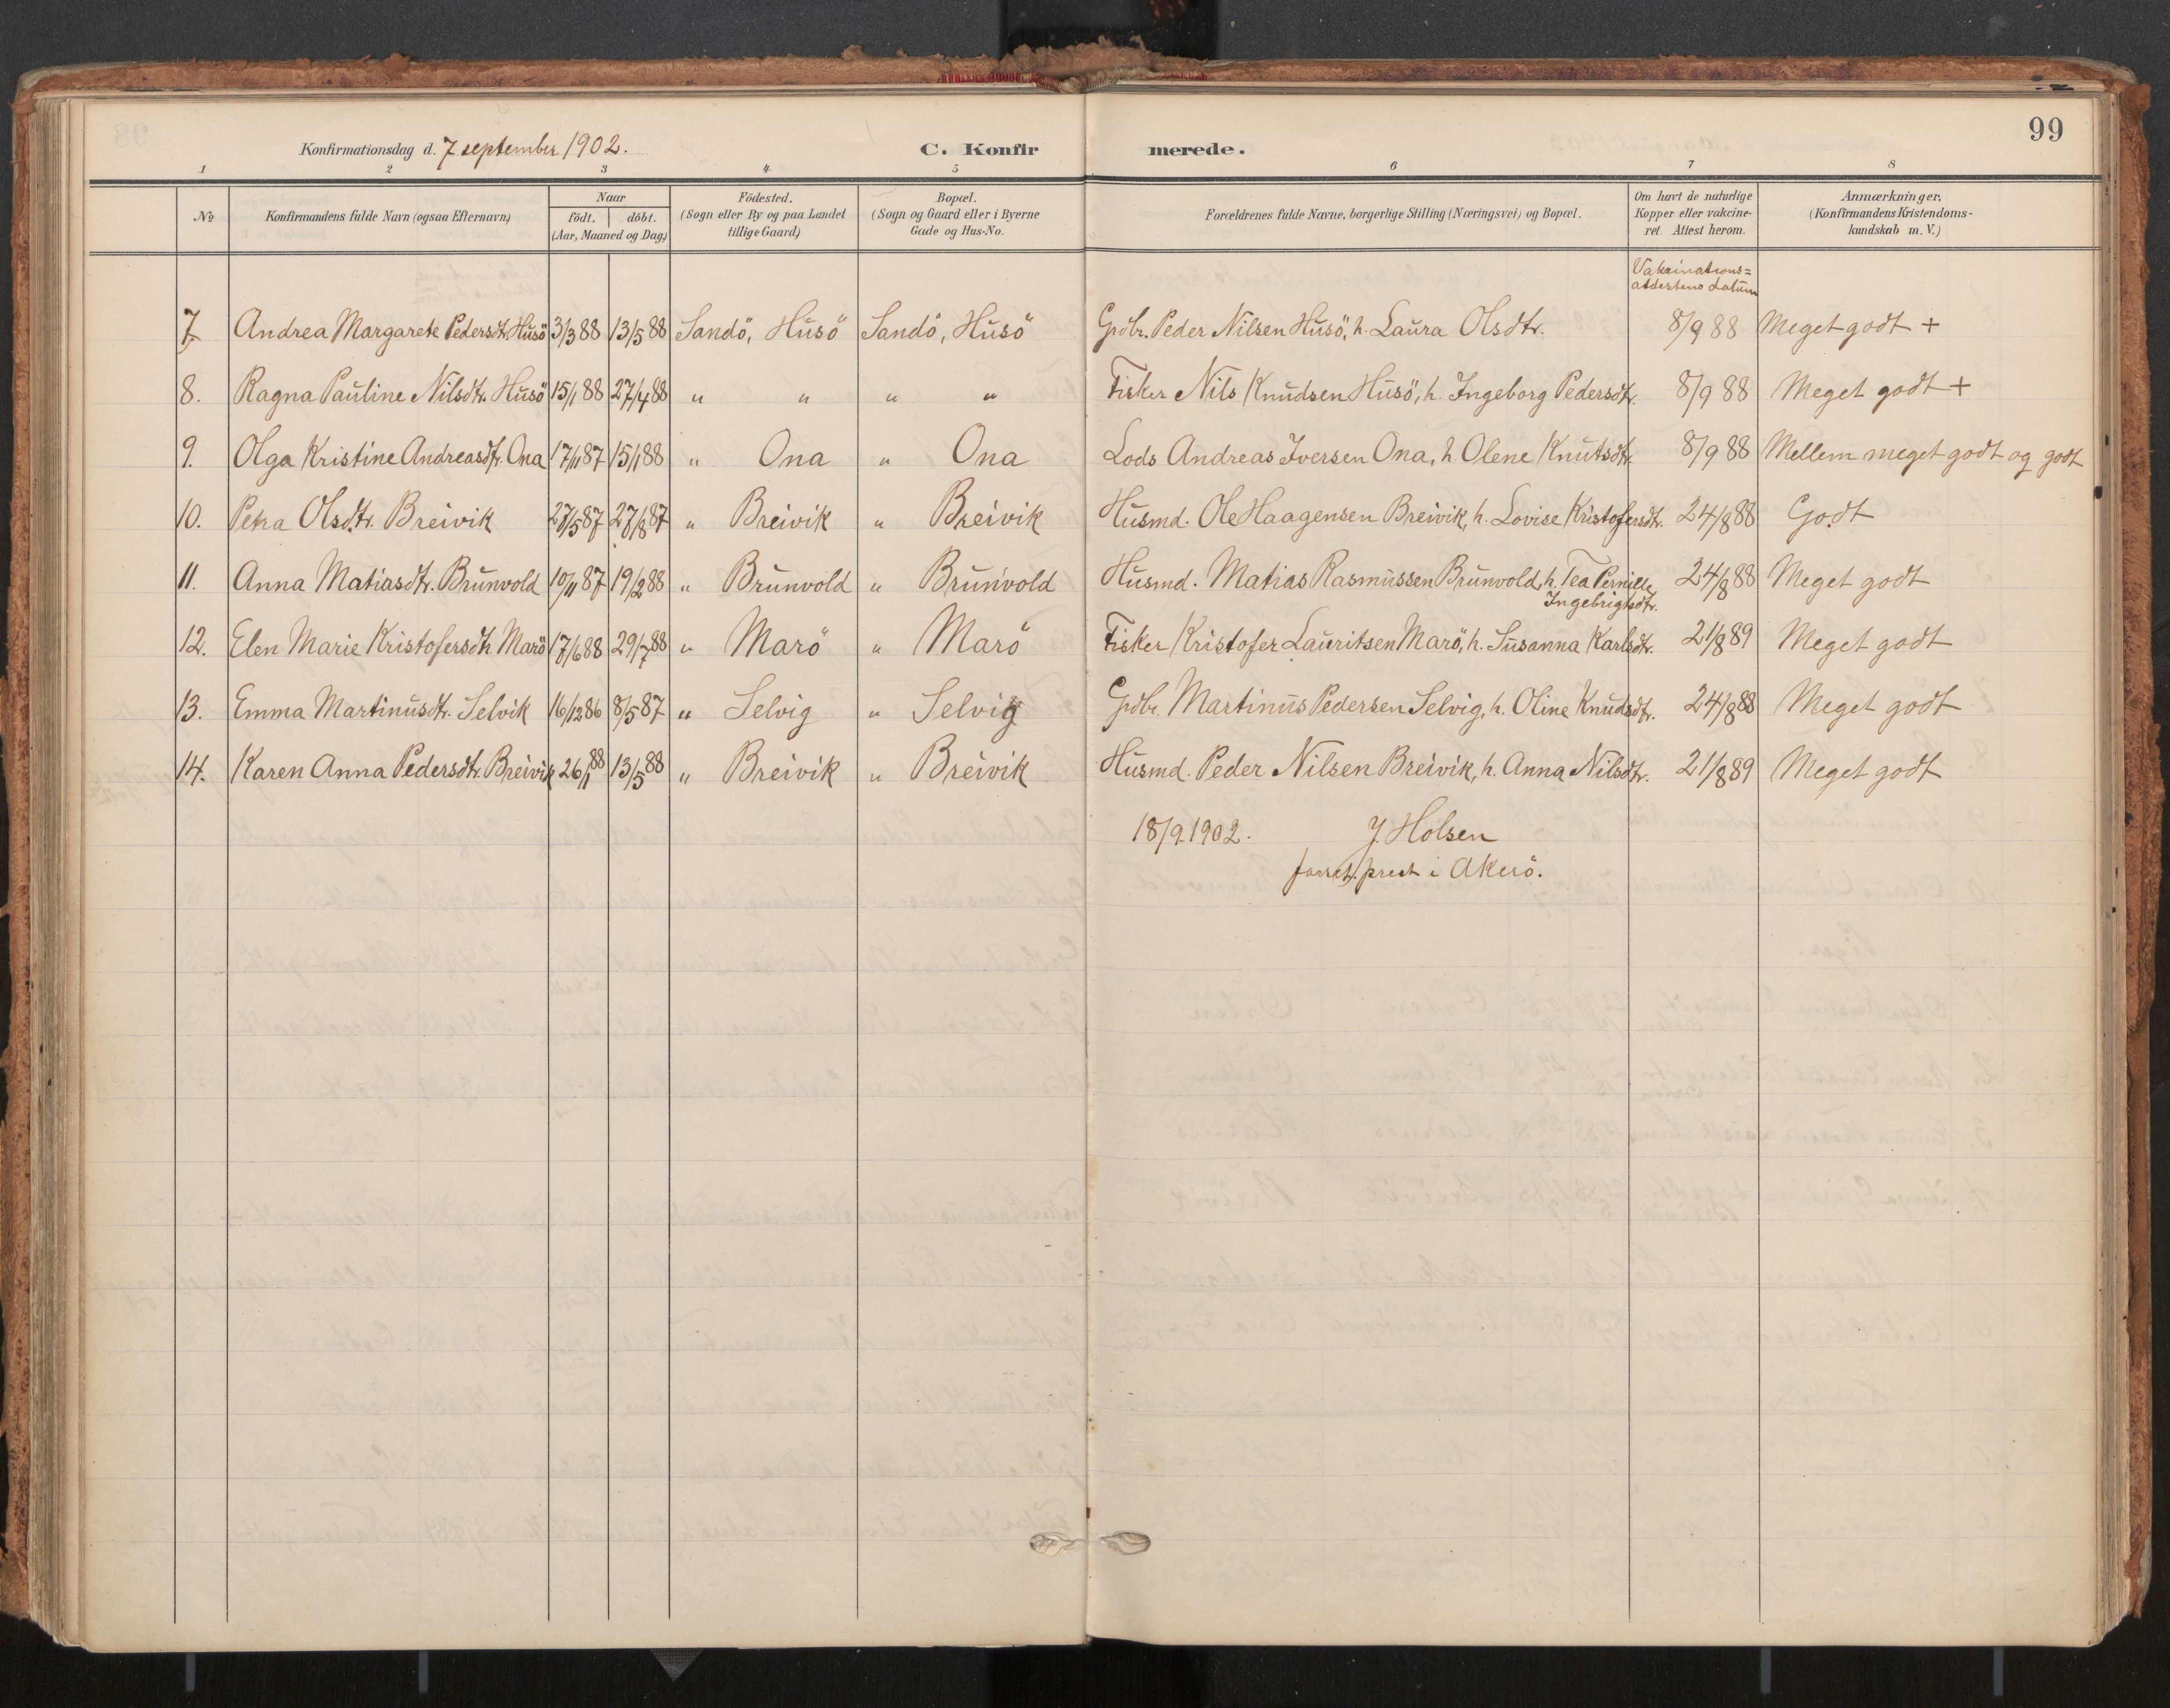 99
Konfirmationsdag d. 7 september 1902. C. Konfirmerede.
1 2 3 4 5 6 7 8
No Konfirmandens fulde Navn (ogsaa Efternavn) Naar født. döbt. (Aar, Maaned og Dag) Födested. (Sogn eller By og paa Landet tillige Gaard) Bopæl. (Sogn og Gaard eller i Byerne Gade og Hus-No. Forældrenes fulde Navne, borgerlige Stilling (Næringsvei) og Bopæl. Om havt de naturlige Kopper eller vakcineret. Attest herom. Anmærkninger. (Konfirmandens Kristendomskundskab m. V.)
Vakcinations=
atdestens datum
7. Andrea Margarete Pedersdtr. Husö 3/3 88 13/5 88 Sandö, Husö Sandö, Husö Grdbr. Peder Nilsen Husö, h. Laura Olsdtr. 8/9 88 Meget godt +
8. Ragna Pauline Nilsdtr. Husö 15/1 88 27/4 88 " " " " Fisker Nils Knudsen Husö, h. Ingeborg Pedersdtr. 8/9 88 Meget godt +
9. Olga Kristine Andreasdtr. Ona 17/11 87 15/1 88 " Ona " Ona Lods Andreas Iversen Ona, h. Olene Knutsdtr. 8/9 88 Mellem meget godt og godt
10. Petra Olsdtr. Breivik 27/5 87 27/8 87 " Breivik " Breivik Husmd. Ole Haagensen Breivik, h. Lovise Kristofersdtr. 24/8 88 Godt
11. Anna Matiasdtr. Brunvold 10/11 87 19/2 88 " Brunvold " Brunvold Husmd. Matias Rasmussen Brunvold, h. Tea Pernille 24/8 88 Meget godt
Ingebrigtsdtr.
12. Elen Marie Kristofersdtr. Marö 17/6 88 29/7 88 " Marö " Marö Fisker Kristofer Lauritsen Marö, h. Susanna Karlsdtr. 21/8 89 Meget godt
13. Emma Martinusdtr. Selvik 16/12 86 8/5 87 " Selvig " Selvig Grdbr. Martinus Pedersen Selvig, h. Oline Knudsdtr. 24/8 88 Meget godt
14. Karen Anna Pedersdtr. Breivik 26/1 88 13/5 88 " Breivik " Breivik Husmd. Peder Nilsen Breivik, h. Anna Nilsdtr. 21/8 89 Meget godt
18/9 1902. J. Holsen
forret. prest i Akerö.